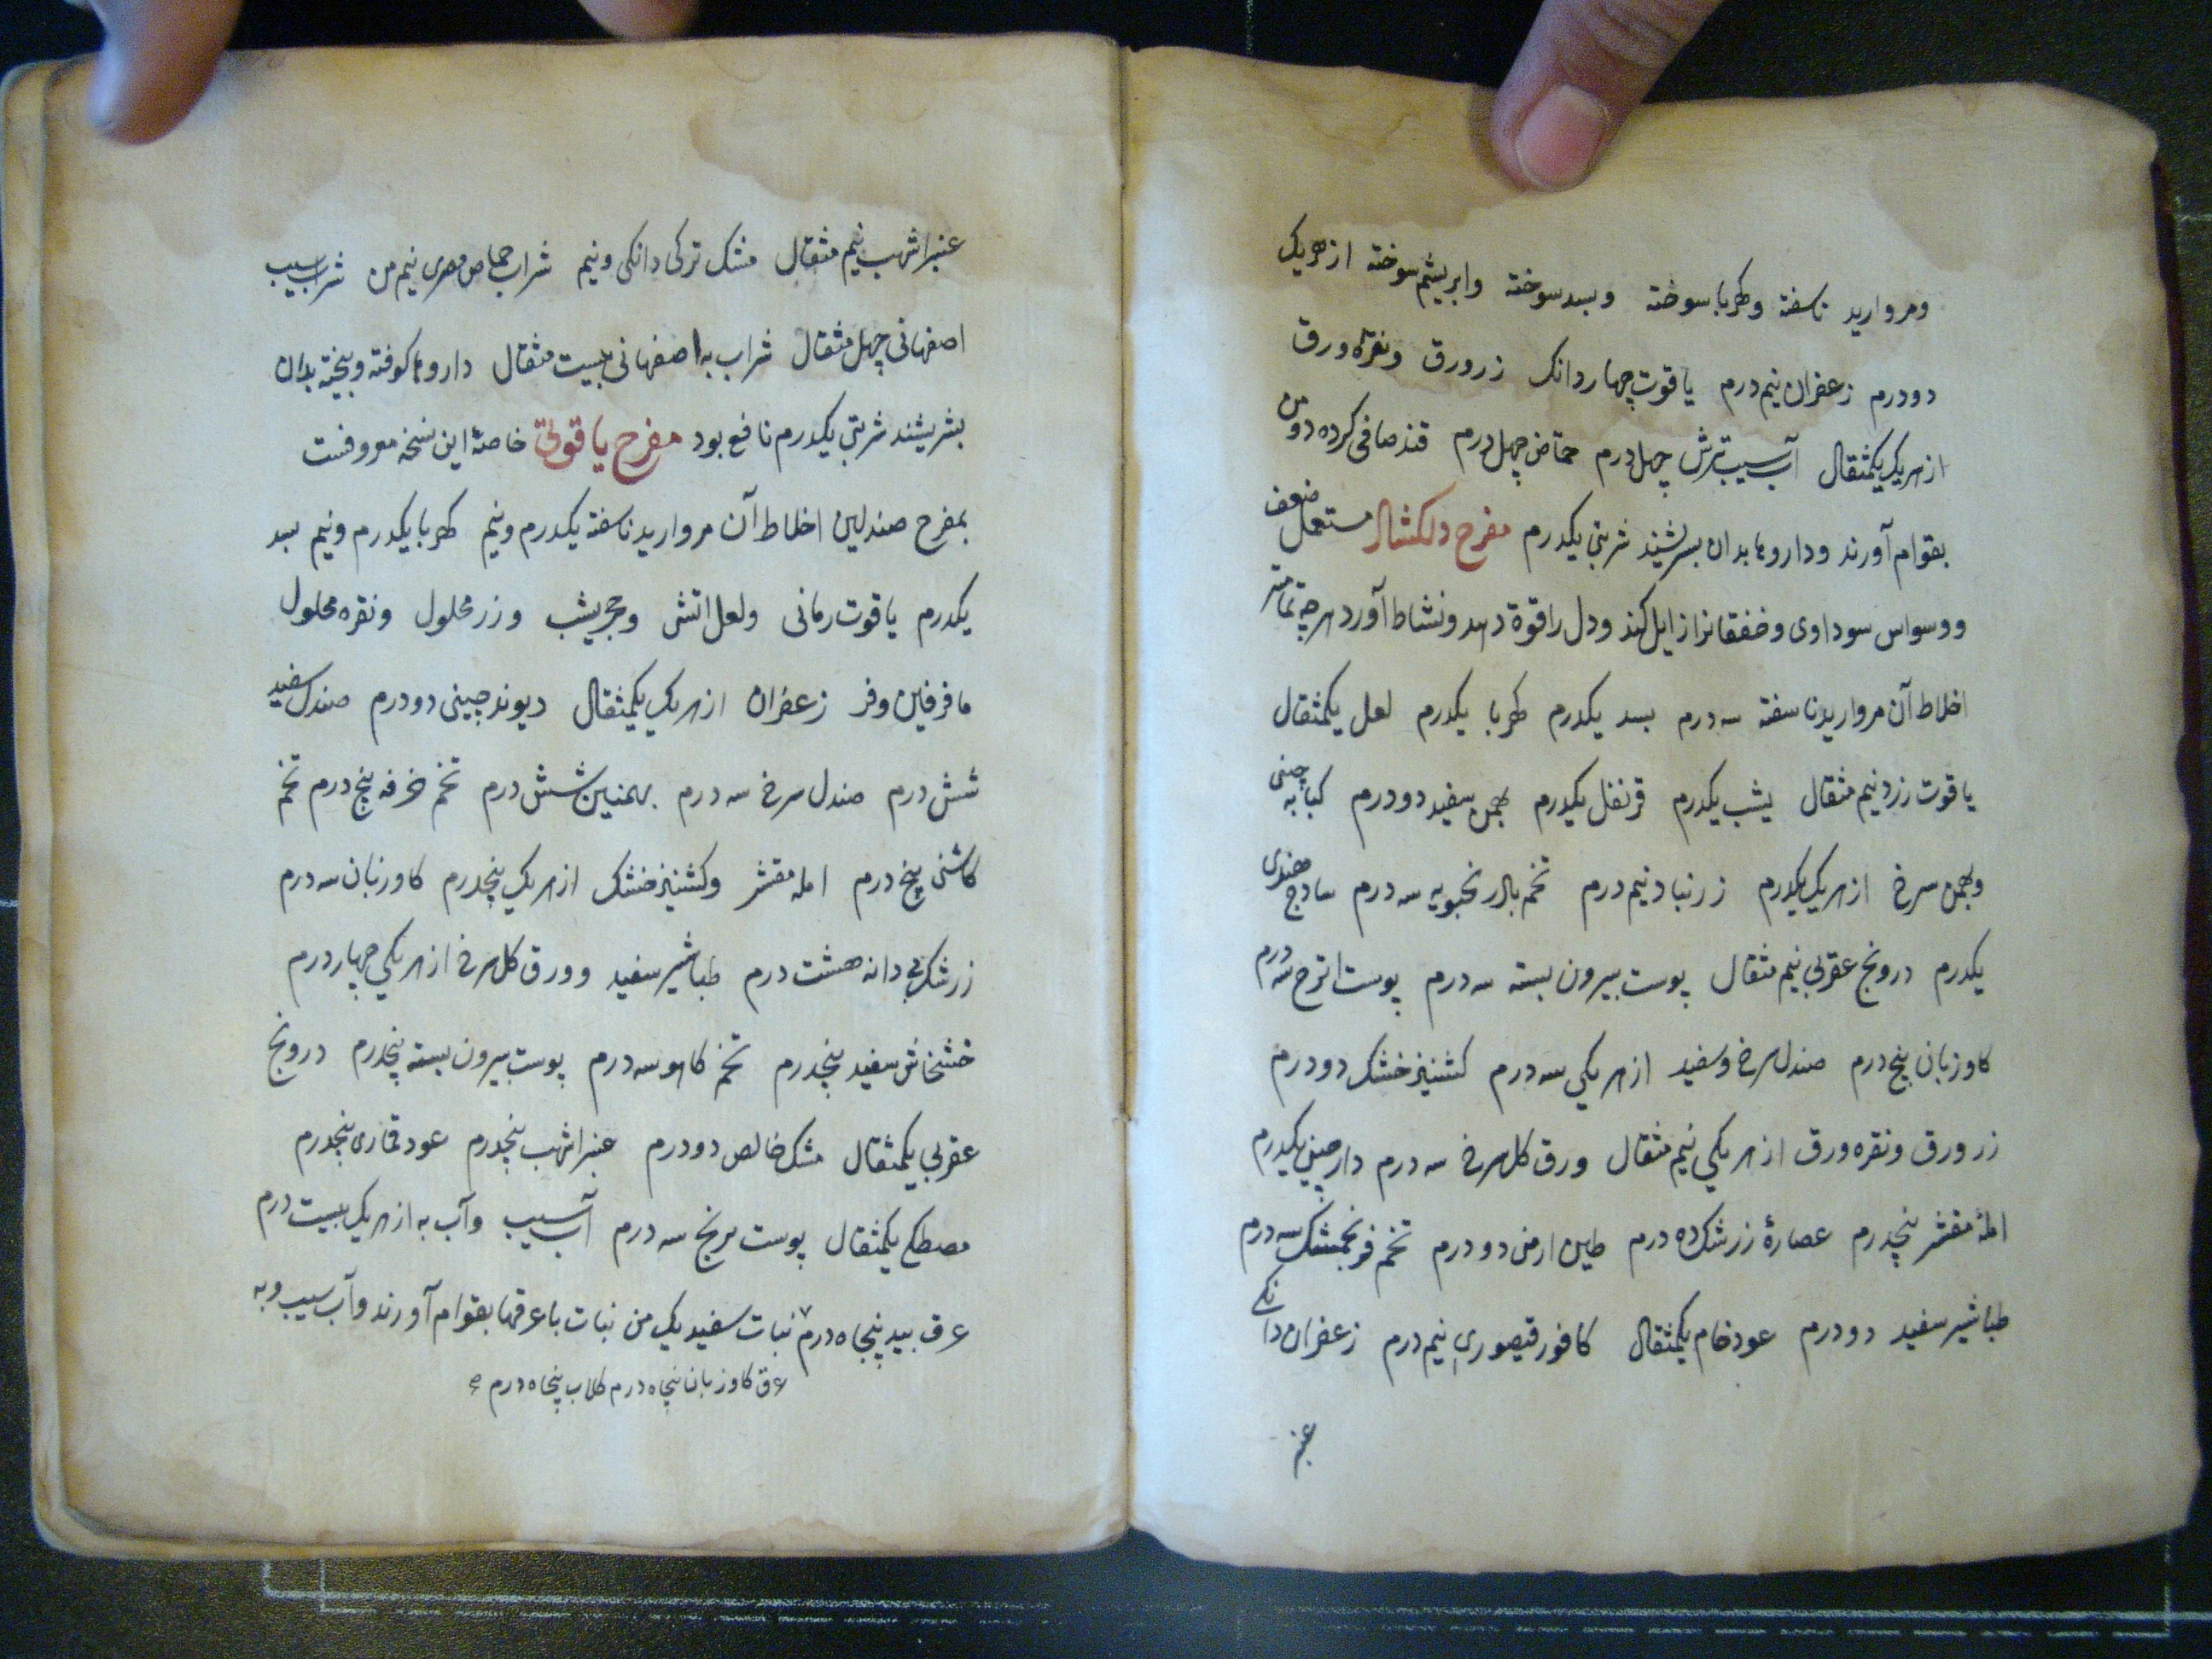 ومروارید ناسفته وکهربا سوخته وبسد سوخته وابریشم سوخته از هریک
دودرم زعفران نیم درم یاقوت چهار دانک زر ورق ونقره ورق
از هریک یکمثقال آب سیب ترش چهل درم حماض چهل درم قند صافی کرده دو من
بقوام آورند وداروها بدان بسرشیند شربتی یکدرم مفرح دلکشا مستعمل ضعف
ووسواس سوداوی وخفقانرا زایل کند ودل را قوة دهد ونشاط آورد هرچه تمامتر
اخلاط آن مروارید ناسفته سه درم بسد یکدرم کهربا یکدرم لعل یکمثقال
یاقوت زرد نیم مثقال یشب یکدرم قرنفل یکدرم بهمن سفید دودرم کبابه چینی
وبهمن سرخ از هریک یکدرم زرنباد نیم درم تخم بادرنجبویه سه درم سادج هندی
یکدرم درونج عقربی نیم مثقال پوست بیرون پسته سه درم پوست اترج سه درم
کاوزبان پنج درم صندل سرخ وسفید از هریکی سه درم کشنیز خشک دودرم
زر ورق ونقره ورق از هریکی نیم مثقال ورق کل سرخ سه درم دارچینی یکدرم
املهٔ مقشر پنجدرم عصارهٔ زرشک ده درم طین ارمنی دودرم تخم فرنجمشک سه درم
طباشیر سفید دودرم عود خام یکمثقال کافور قیصوری نیم درم زعفران دانکی
عنبر
عنبر اشهب نیم مثقال مشک ترکی دانکی ونیم شراب حماض مصری نیم من شراب سیب
اصفهانی چهل مثقال شراب به اصفهانی بیست مثقال داروها کوفته وبیخته بدان
بشریشند شربتی یکدرم نافع بود مفرح یاقوتی خاصهٔ این نسخه معروفست
بمفرح صندلین اخلاط آن مروارید ناسفته یکدرم ونیم کهربا یکدرم ونیم بسد
یکدرم یاقوت رمانی ولعل اتش وحجر یشب وزر محلول ونقره محلول
مافرفین وفر زعفران از هریک یکمثقال دیوند چینی دودرم صندل سفید
شش درم صندل سرخ سه درم بهمنین شش درم تخم خرفه پنج درم تخم
کاشنی پنج درم امله مقشر وکشنیز خشک از هریک پنجدرم کاوزبان سه درم
زرشک بی دانه هشت درم طباشیر سفید وورق کل سرخ از هریکی چهار درم
خشخاش سفید پنجدرم تخم کاهو سه درم پوست بیرون پسته پنجدرم درونج
عقربی یکمثقال مشک خالص دودرم عنبر اشهب پنجدرم عود قماری پنجدرم
مصطکی یکمثقال پوست برنج سه درم آب سیب وآب به از هریک بیست درم
عرق بید پنجاه درم نبات سفید یک من نبات با عرقها بقوام آورند وآب سیب وبه
عرق کاوزبان پنجاه درم کلاب پنجاه درم